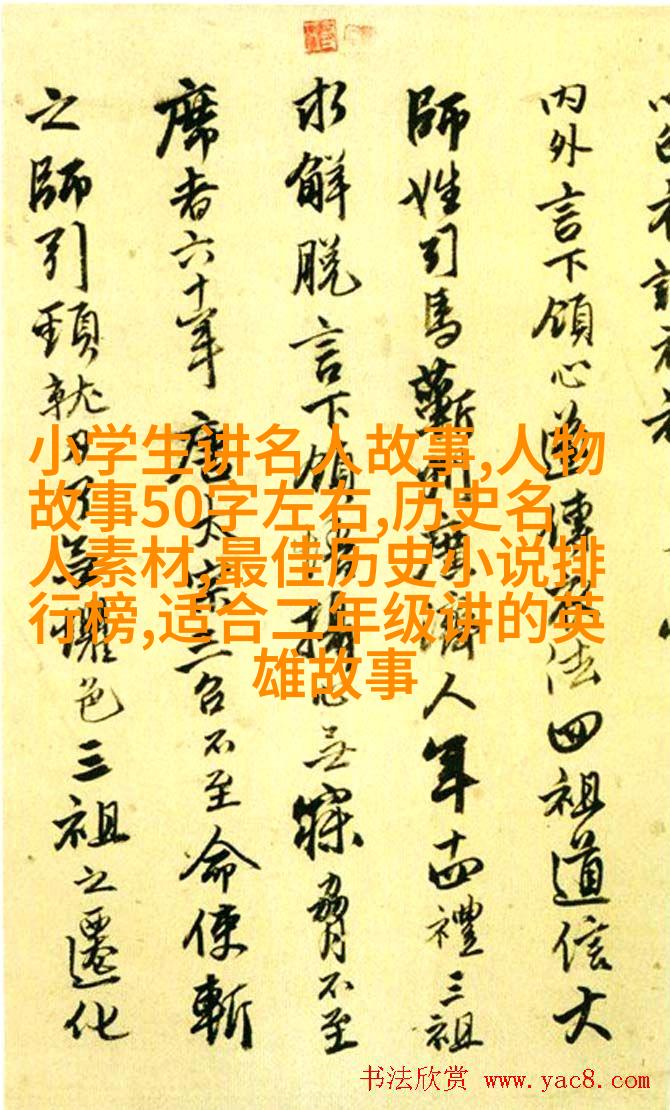 内外言下領心遂傳法四祖道信大
師姓司馬蘄州廣濟人年十四禮三祖
求解脫言下領攝心無寐脅不至
席者六十年唐太宗三召不至命使斬
之師引頸就刃了無懼色三祖之遷化
小学生讲名人故事,人物
故事50字左右,历史名
人素材,最佳历史小说排
行榜,适合二年级讲的英
雄故事
书法欣赏 www.yac8.com